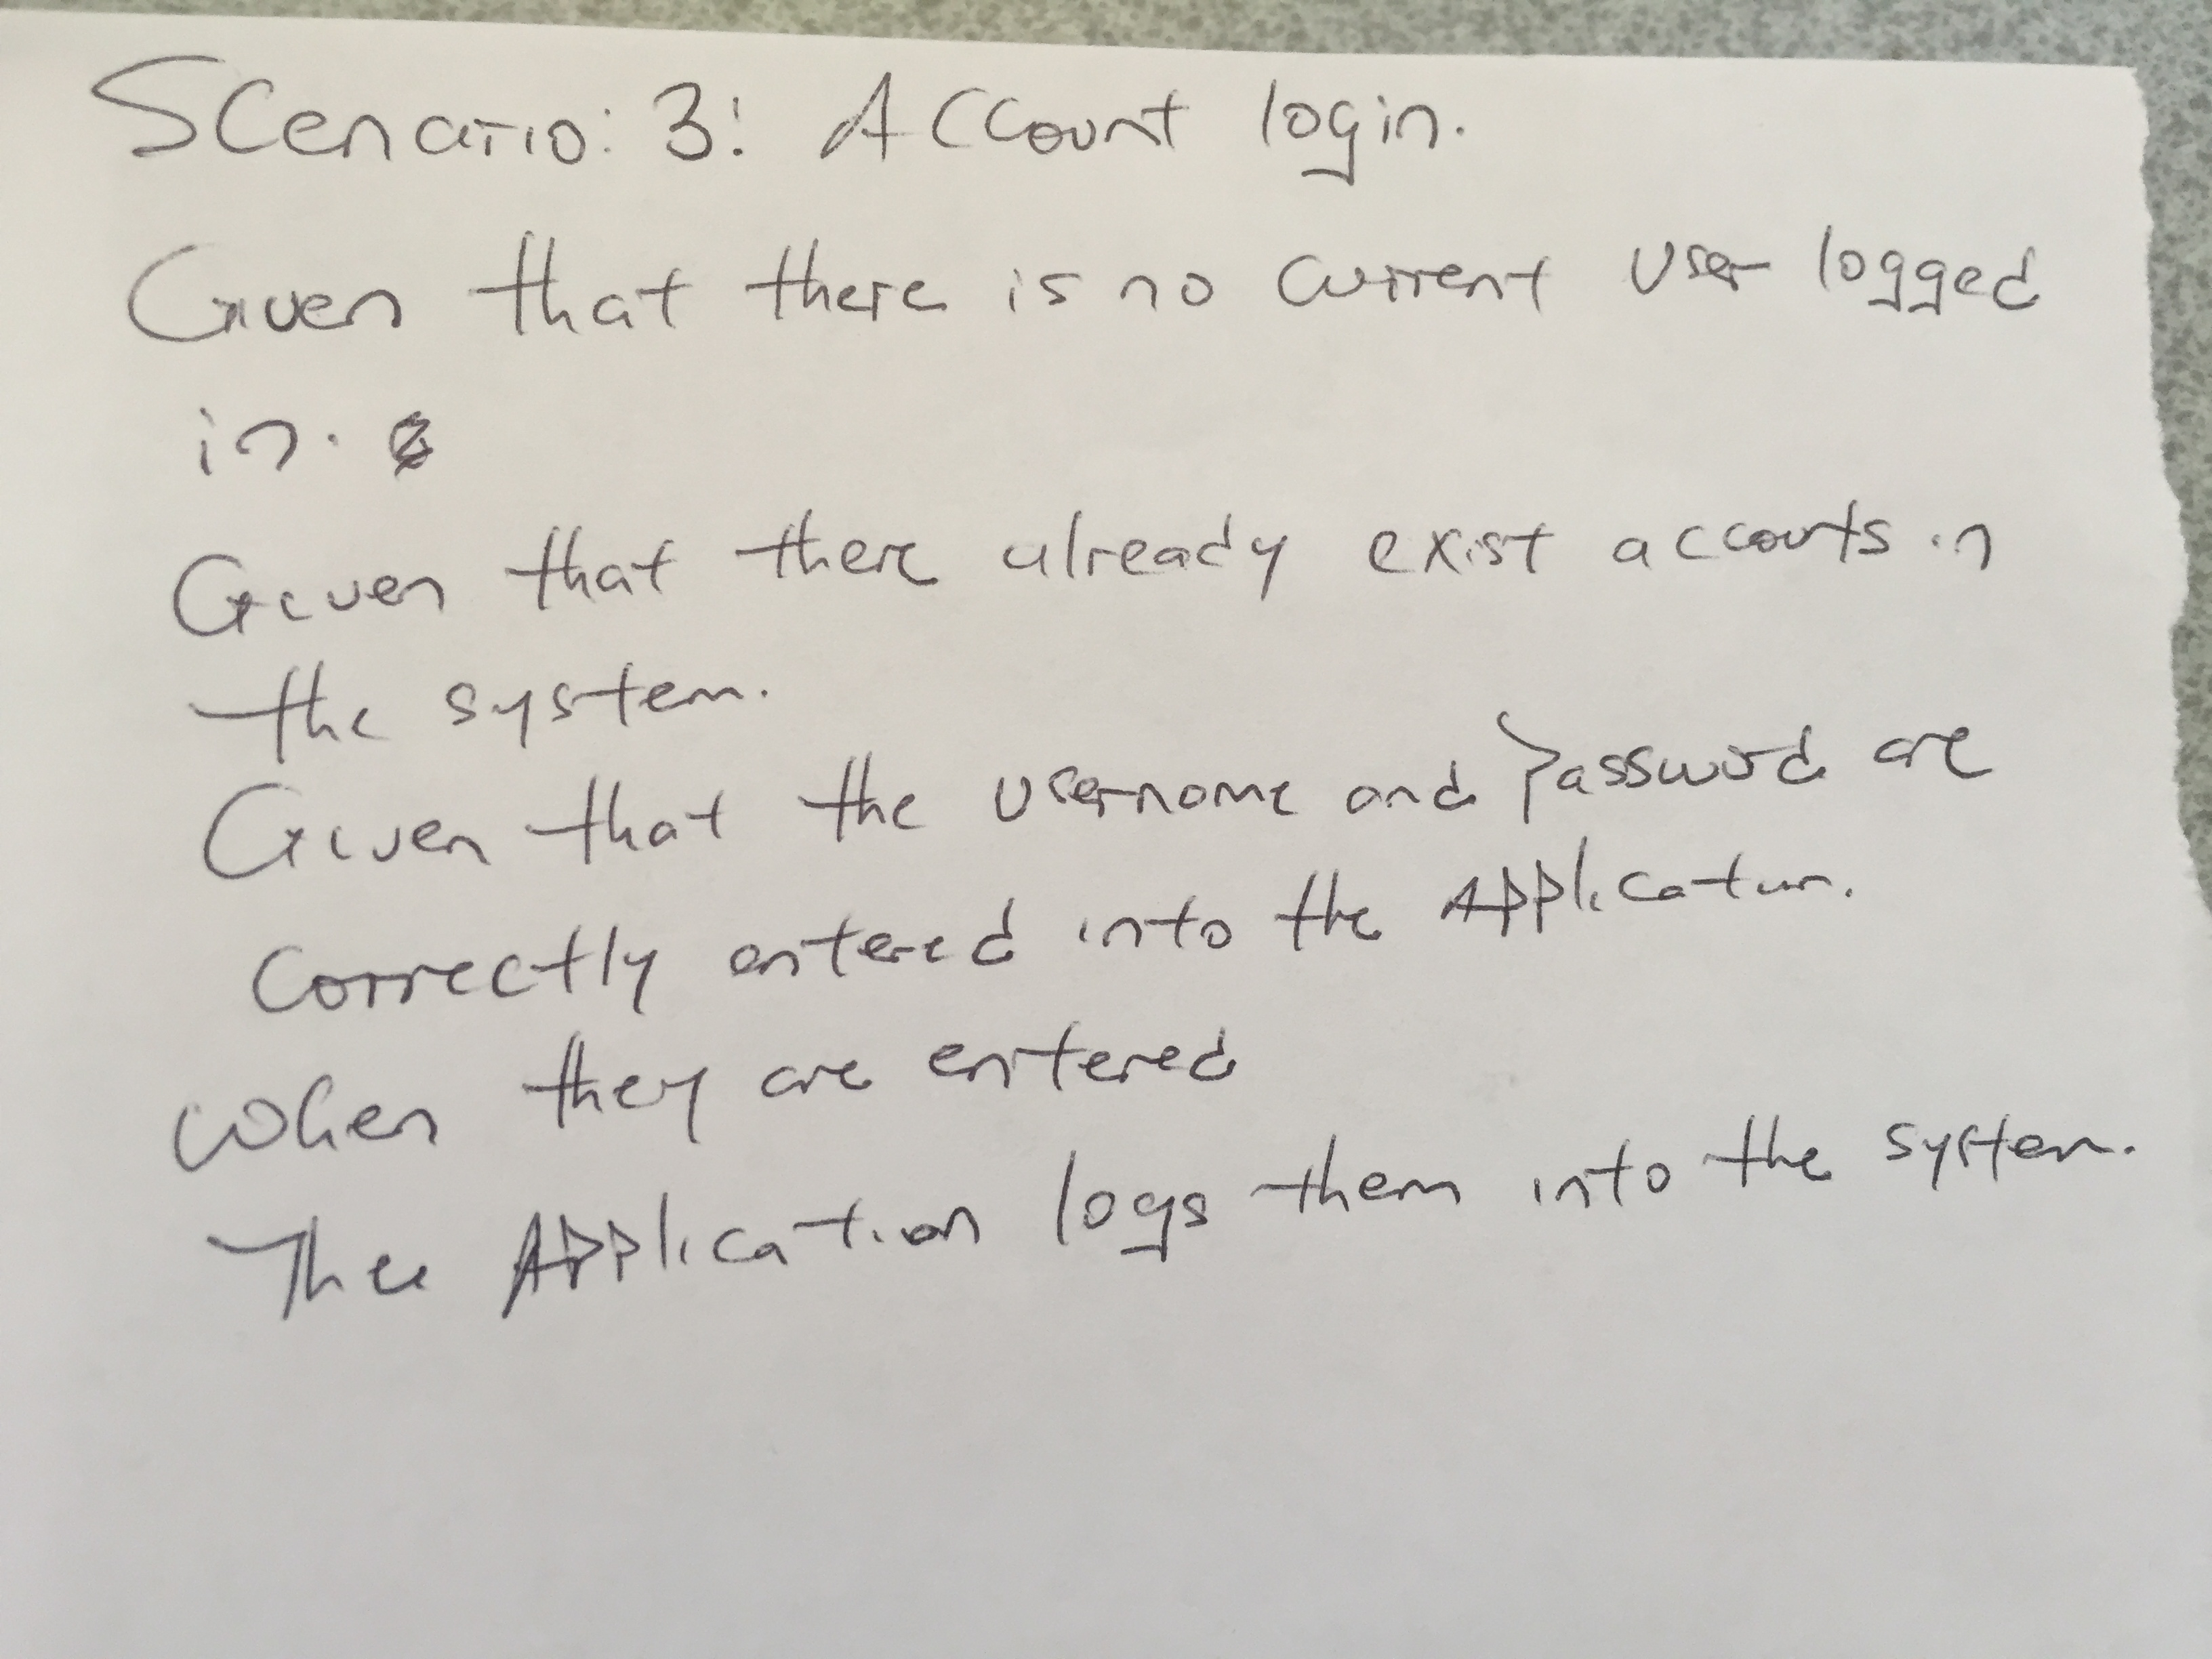 Scenario: 3: Account login.
Given that there is no current user logged
in.
Given that there already exist accounts in
the system.
Given that the username and Password are
correctly entered into the Application.
When they are entered
The Application logs them into the system.